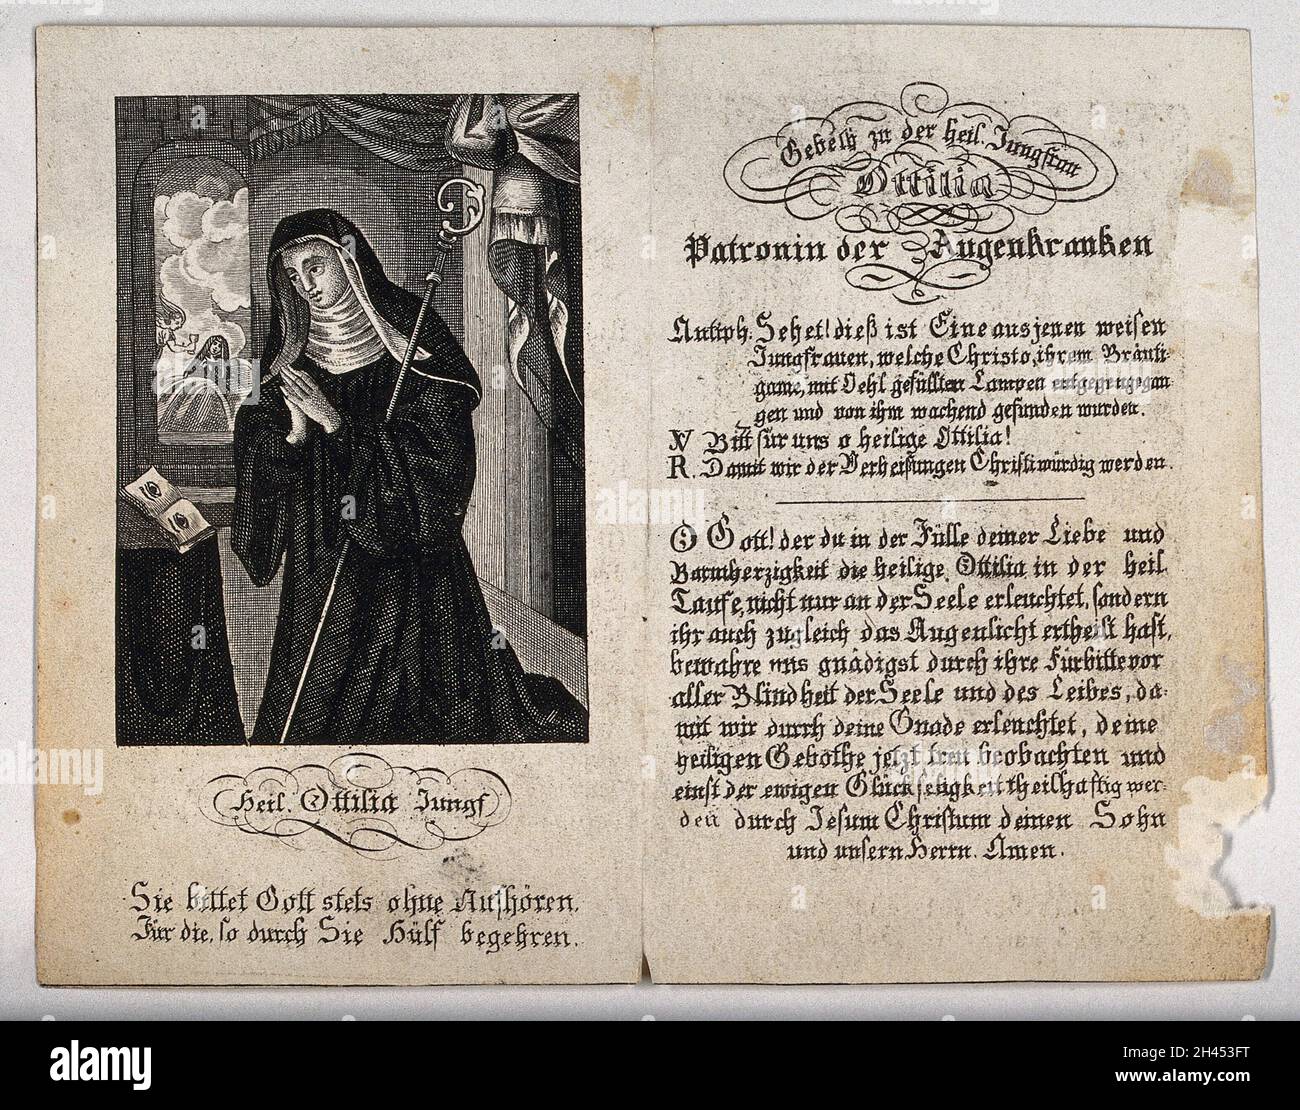 Heil. Ottilia Jungf
Sie bittet Gott stets ohne Aufhören,
Für die, so durch Sie Hülf begehren.
Gebeth zu der heil. Jungfrau
Ottilia
Patronin der Augenkranken
Antiph. Sehet! dieß ist Eine aus jenen weisen
Jungfrauen, welche Christo, ihrem Bräuti-
game, mit Oehl gefüllten Lampen entgegengegan
gen und von ihm wachend gefunden wurden.
V Bitt für uns o heilige Ottilia!
R. Damit wir der Verheißungen Christi würdig werden.
O Gott! der du in der Fülle deiner Liebe und
Barmherzigkeit die heilige Ottilia in der heil
Taufe, nicht nur an der Seele erleuchtet, sondern
ihr auch zugleich das Augenlicht ertheilt hast,
bewahre uns gnädigst durch ihre Fürbitte vor
aller Blindheit der Seele und des Leibes, da-
mit wir durch deine Gnade erleuchtet, deine
heiligen Gebothe jetzt treu beobachten und
einst der ewigen Glückseligkeit theilhaftig wer-
den durch Jesum Christum deinen Sohn
und unsern Herrn. Amen.
alamy
Image ID: 2H453FT
www.alamy.com